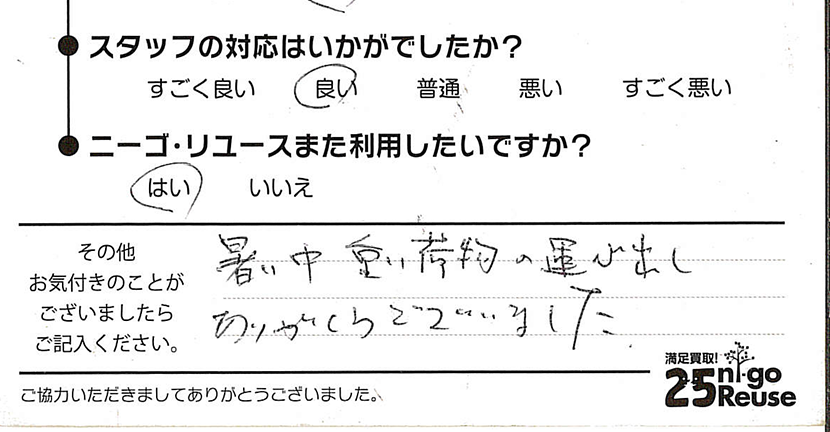 スタッフの対応はいかがでしたか？
すごく良い 良い 普通 悪い すごく悪い
ニーゴ・リユースまた利用したいですか？
はい いいえ
その他
お気付きのことが
ございましたら
ご記入ください。
暑い中 重い荷物の運び出し
ありがとうございました
ご協力いただきましてありがとうございました。
満足買取!
25 ni-go
Reuse